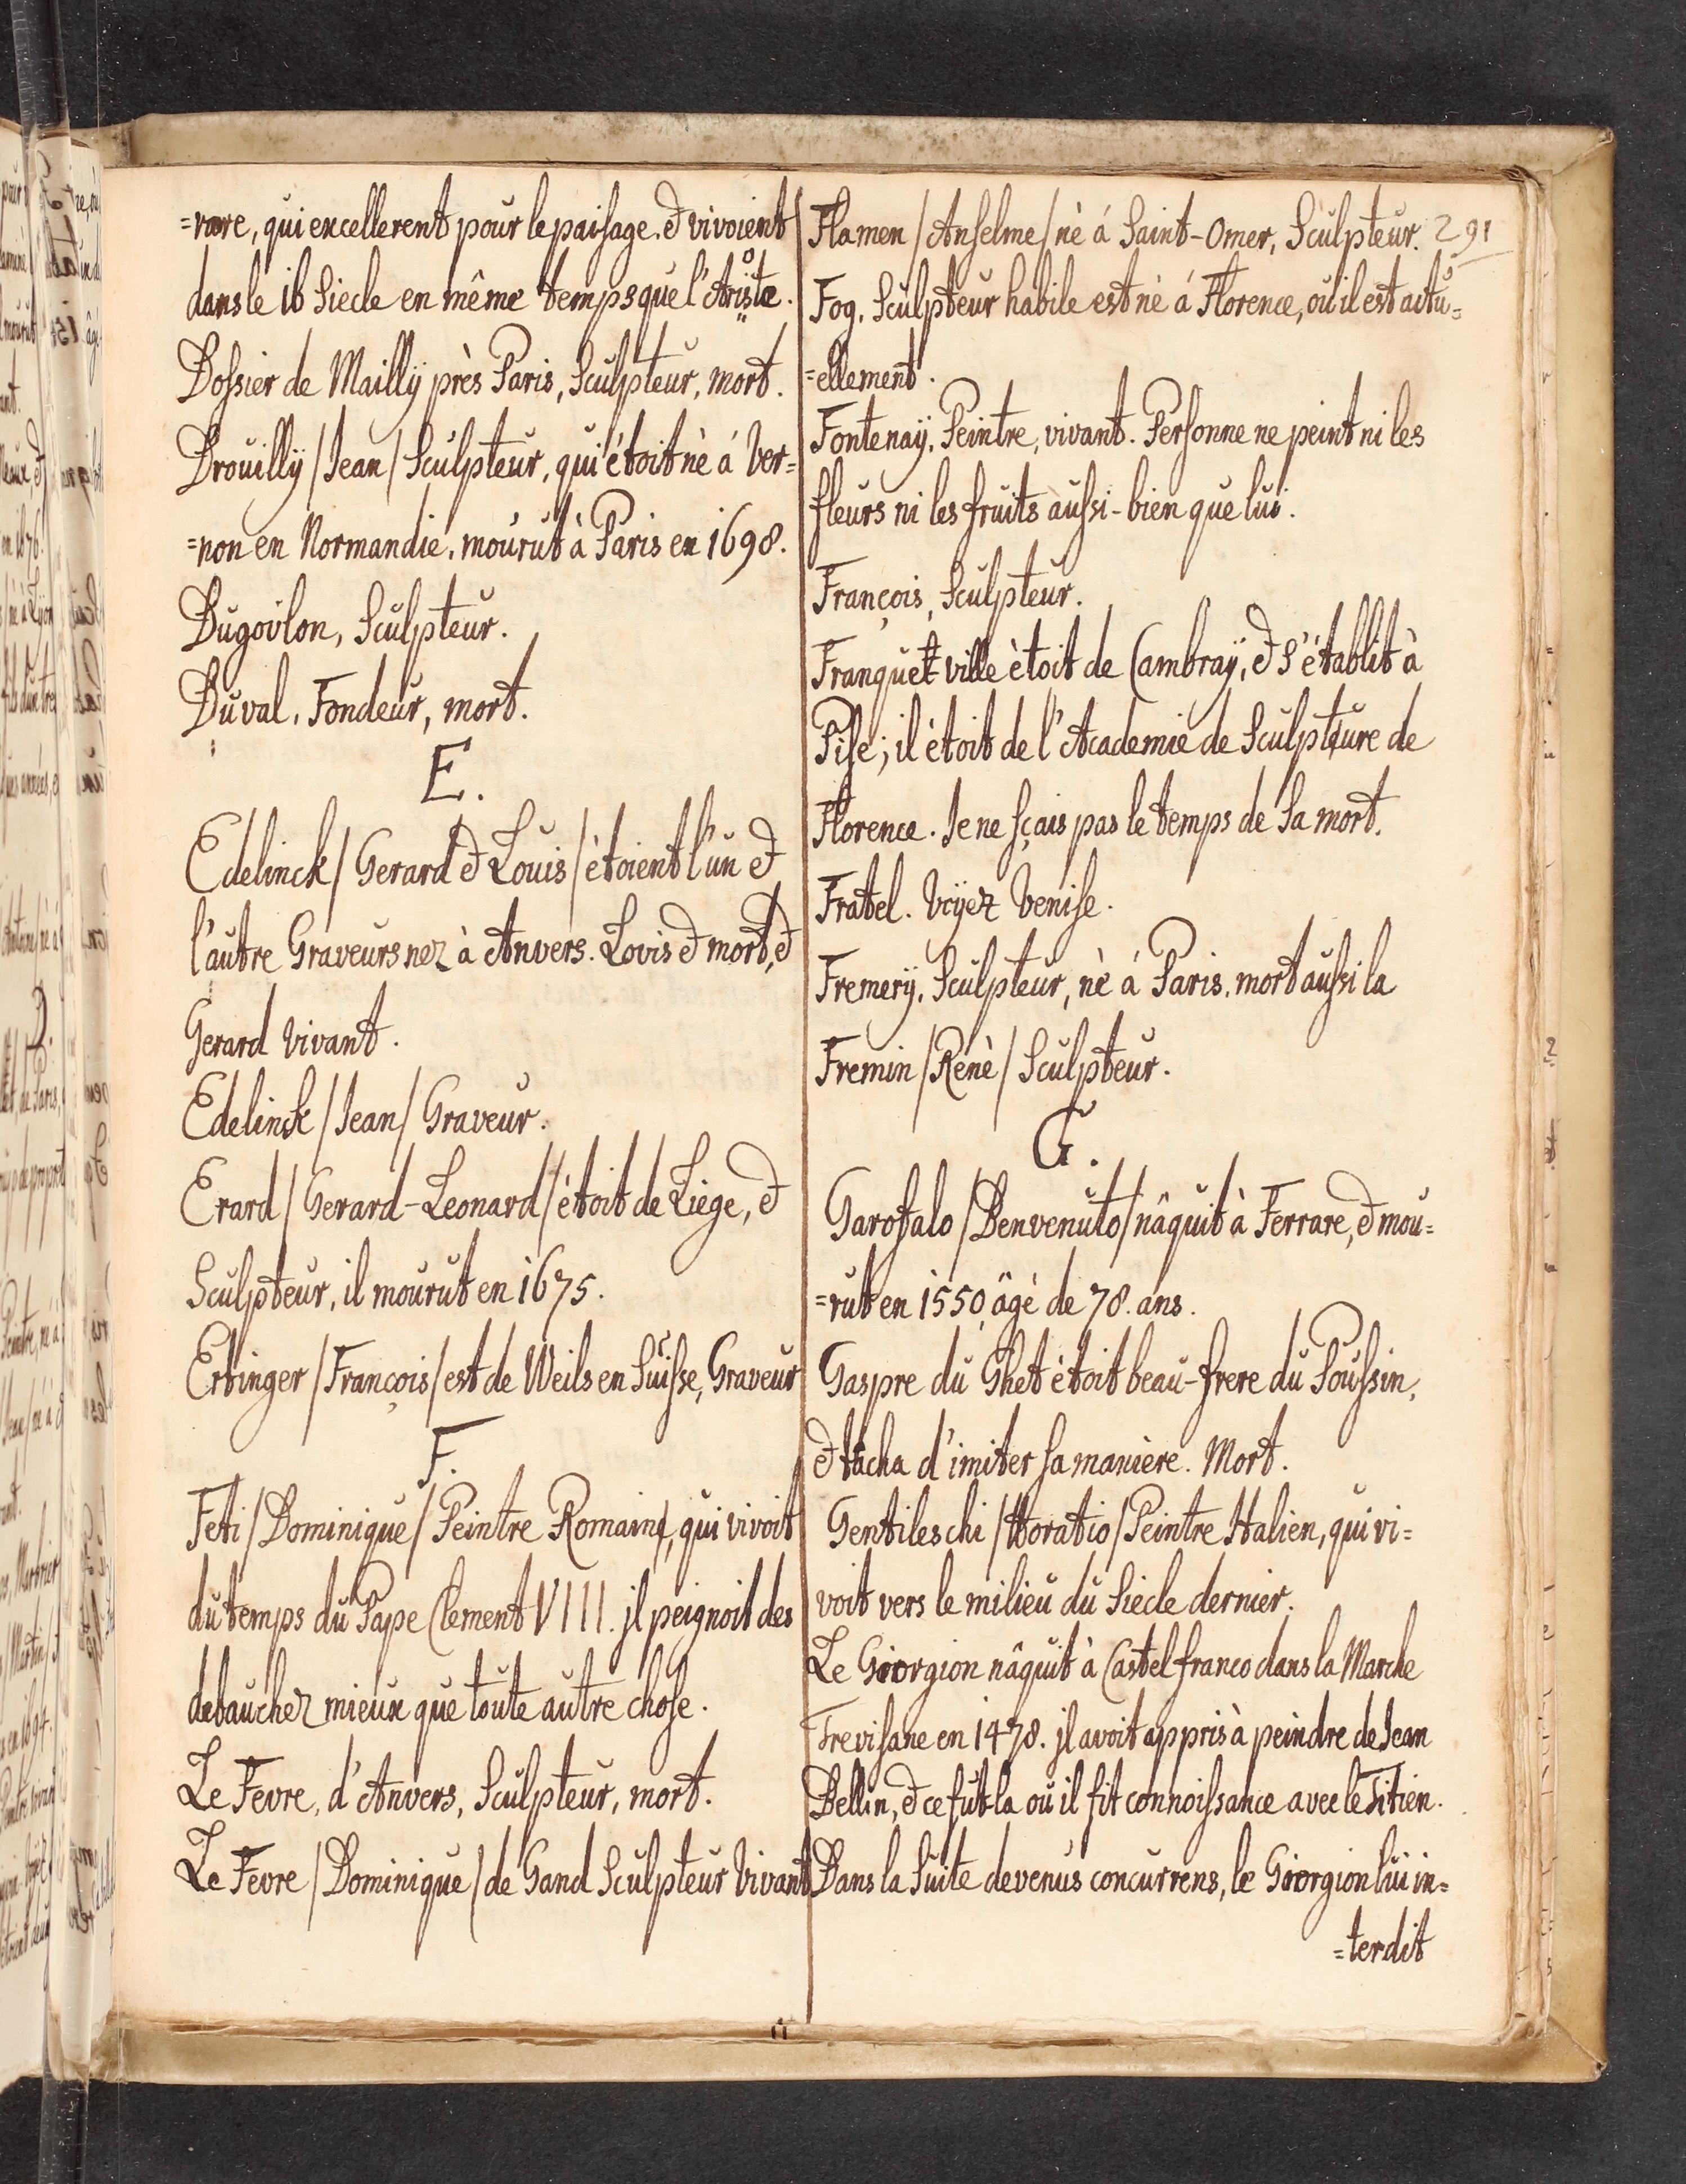 =rare, qui excellerent pour le paisage, & vivoient
dans le 16 Siecle en même temps que l'Arioste.
Dossier de Maillÿ près Paris, Sculpteur, mort.
Drouillÿ / Jean / Sculpteur, qui étoit né á Ver=
=non en Normandie, mourut à Paris en 1698.
Dugoulon, Sculpteur.
Duval, Fondeur, mort.
E.
Edelinck / Gerard & Louis / étoient l'un &
l'autre Graveurs nez à Anvers. Lovis & mort, &
Gerard vivant.
Edelinck / Jean / Graveur.
Erard / Gerard-Leonard / étoit de Liege, &
Sculpteur, il mourut en 1675.
Ertinger / François / est de Weils en Suisse, Graveur
F.
Feti / Dominique / Peintre Romain, qui vivoit
du temps du Pape Clement VIII. jl peignoit des
debauchez mieux que toute autre chose.
Le Fevre, d'Anvers, Sculpteur, mort.
Le Fevre / Dominique / de Gand Sculpteur Vivant
Flamen / Anselme / nè á Saint-Omer, Sculpteur. 291
Fog, Sculpteur habile est nè á Florence, où il est actu=
=ellement.
Fontenaÿ, Peintre, vivant. Personne ne peint ni les
fleurs ni les fruits aussi-bien que lui.
François, Sculpteur.
Franquet ville ètoit de Cambraÿ, & s'établit à
Pise; il ètoit de l'Academie de Sculpture de
Florence. Je ne sçais pas le temps de Sa mort.
Fratel. Voÿez Venise.
Fremerÿ, Sculpteur, nè á Paris, mort aussi la
Fremin / Renè / Sculpteur.
G.
Garofalo / Benvenuto / nâquit à Ferrare, & mou=
=rut en 1550, âgé de 78. ans.
Gaspre du Ghet ètoit beau-frere du Poussin,
& tâcha d'imiter sa maniere. Mort.
Gentileschi / Horatio / Peintre Italien, qui vi=
voit vers le milieu du Siecle dernier.
Le Giorgion nâquit à Castel franco dans la Marche
Trevisane en 1478. jl avoit appris à peindre de Jean
Bellin, & ce fut-la où il fit connoissance avec le Titien.
Dans la Suite devenus concurrens, le Giorgion lui in=
=terdit